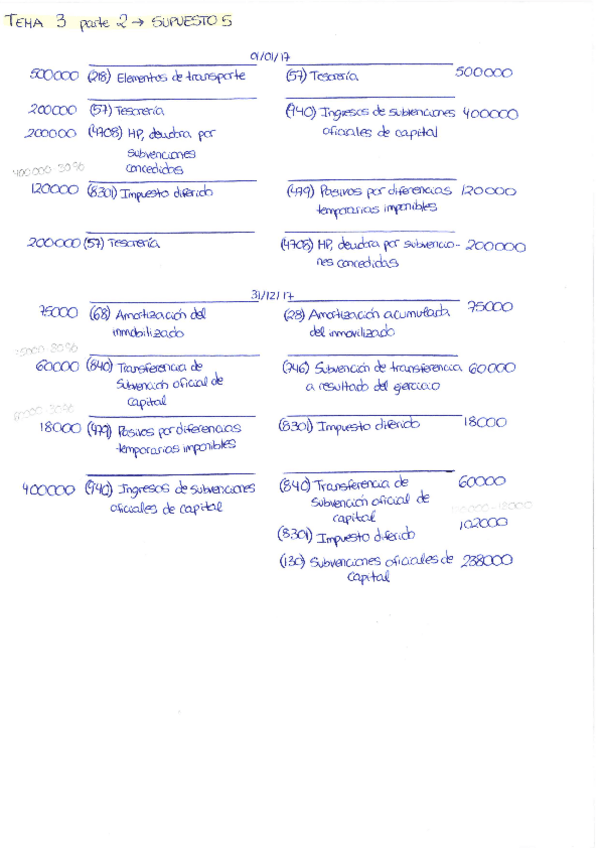 TEMA 3 parte 2 → SUPUESTO 5
01/01/17
500000 (218) Elementos de transporte (57) Tesorería 500000
200000 (57) Tesorería (940) Ingresos de subvenciones 400000
200000 (4708) HP, deudora por oficiales de capital
subvenciones
concedidas
400000·30%
120000 (8301) Impuesto diferido (479) Pasivos por diferencias 120000
temporarias imponibles
200000 (57) Tesorería (4708) HP, deudora por subvencio- 200000
nes concedidas
31/12/17
75000 (68) Amortización del (28) Amortización acumulada 75000
inmobilizado del inmovilizado
60000 (840) Transferencia de (746) Subvención de transferencia 60000
Subvención oficial de a resultado del ejercicio
capital
60000·30%
18000 (479) Pasivos por diferencias (8301) Impuesto diferido 18000
temporarias imponibles
400000 (940) Ingresos de subvenciones (840) Transferencia de 60000
oficiales de capital subvención oficial de
capital
(8301) Impuesto diferido 102000
(130) Subvenciones oficiales de 238000
capital